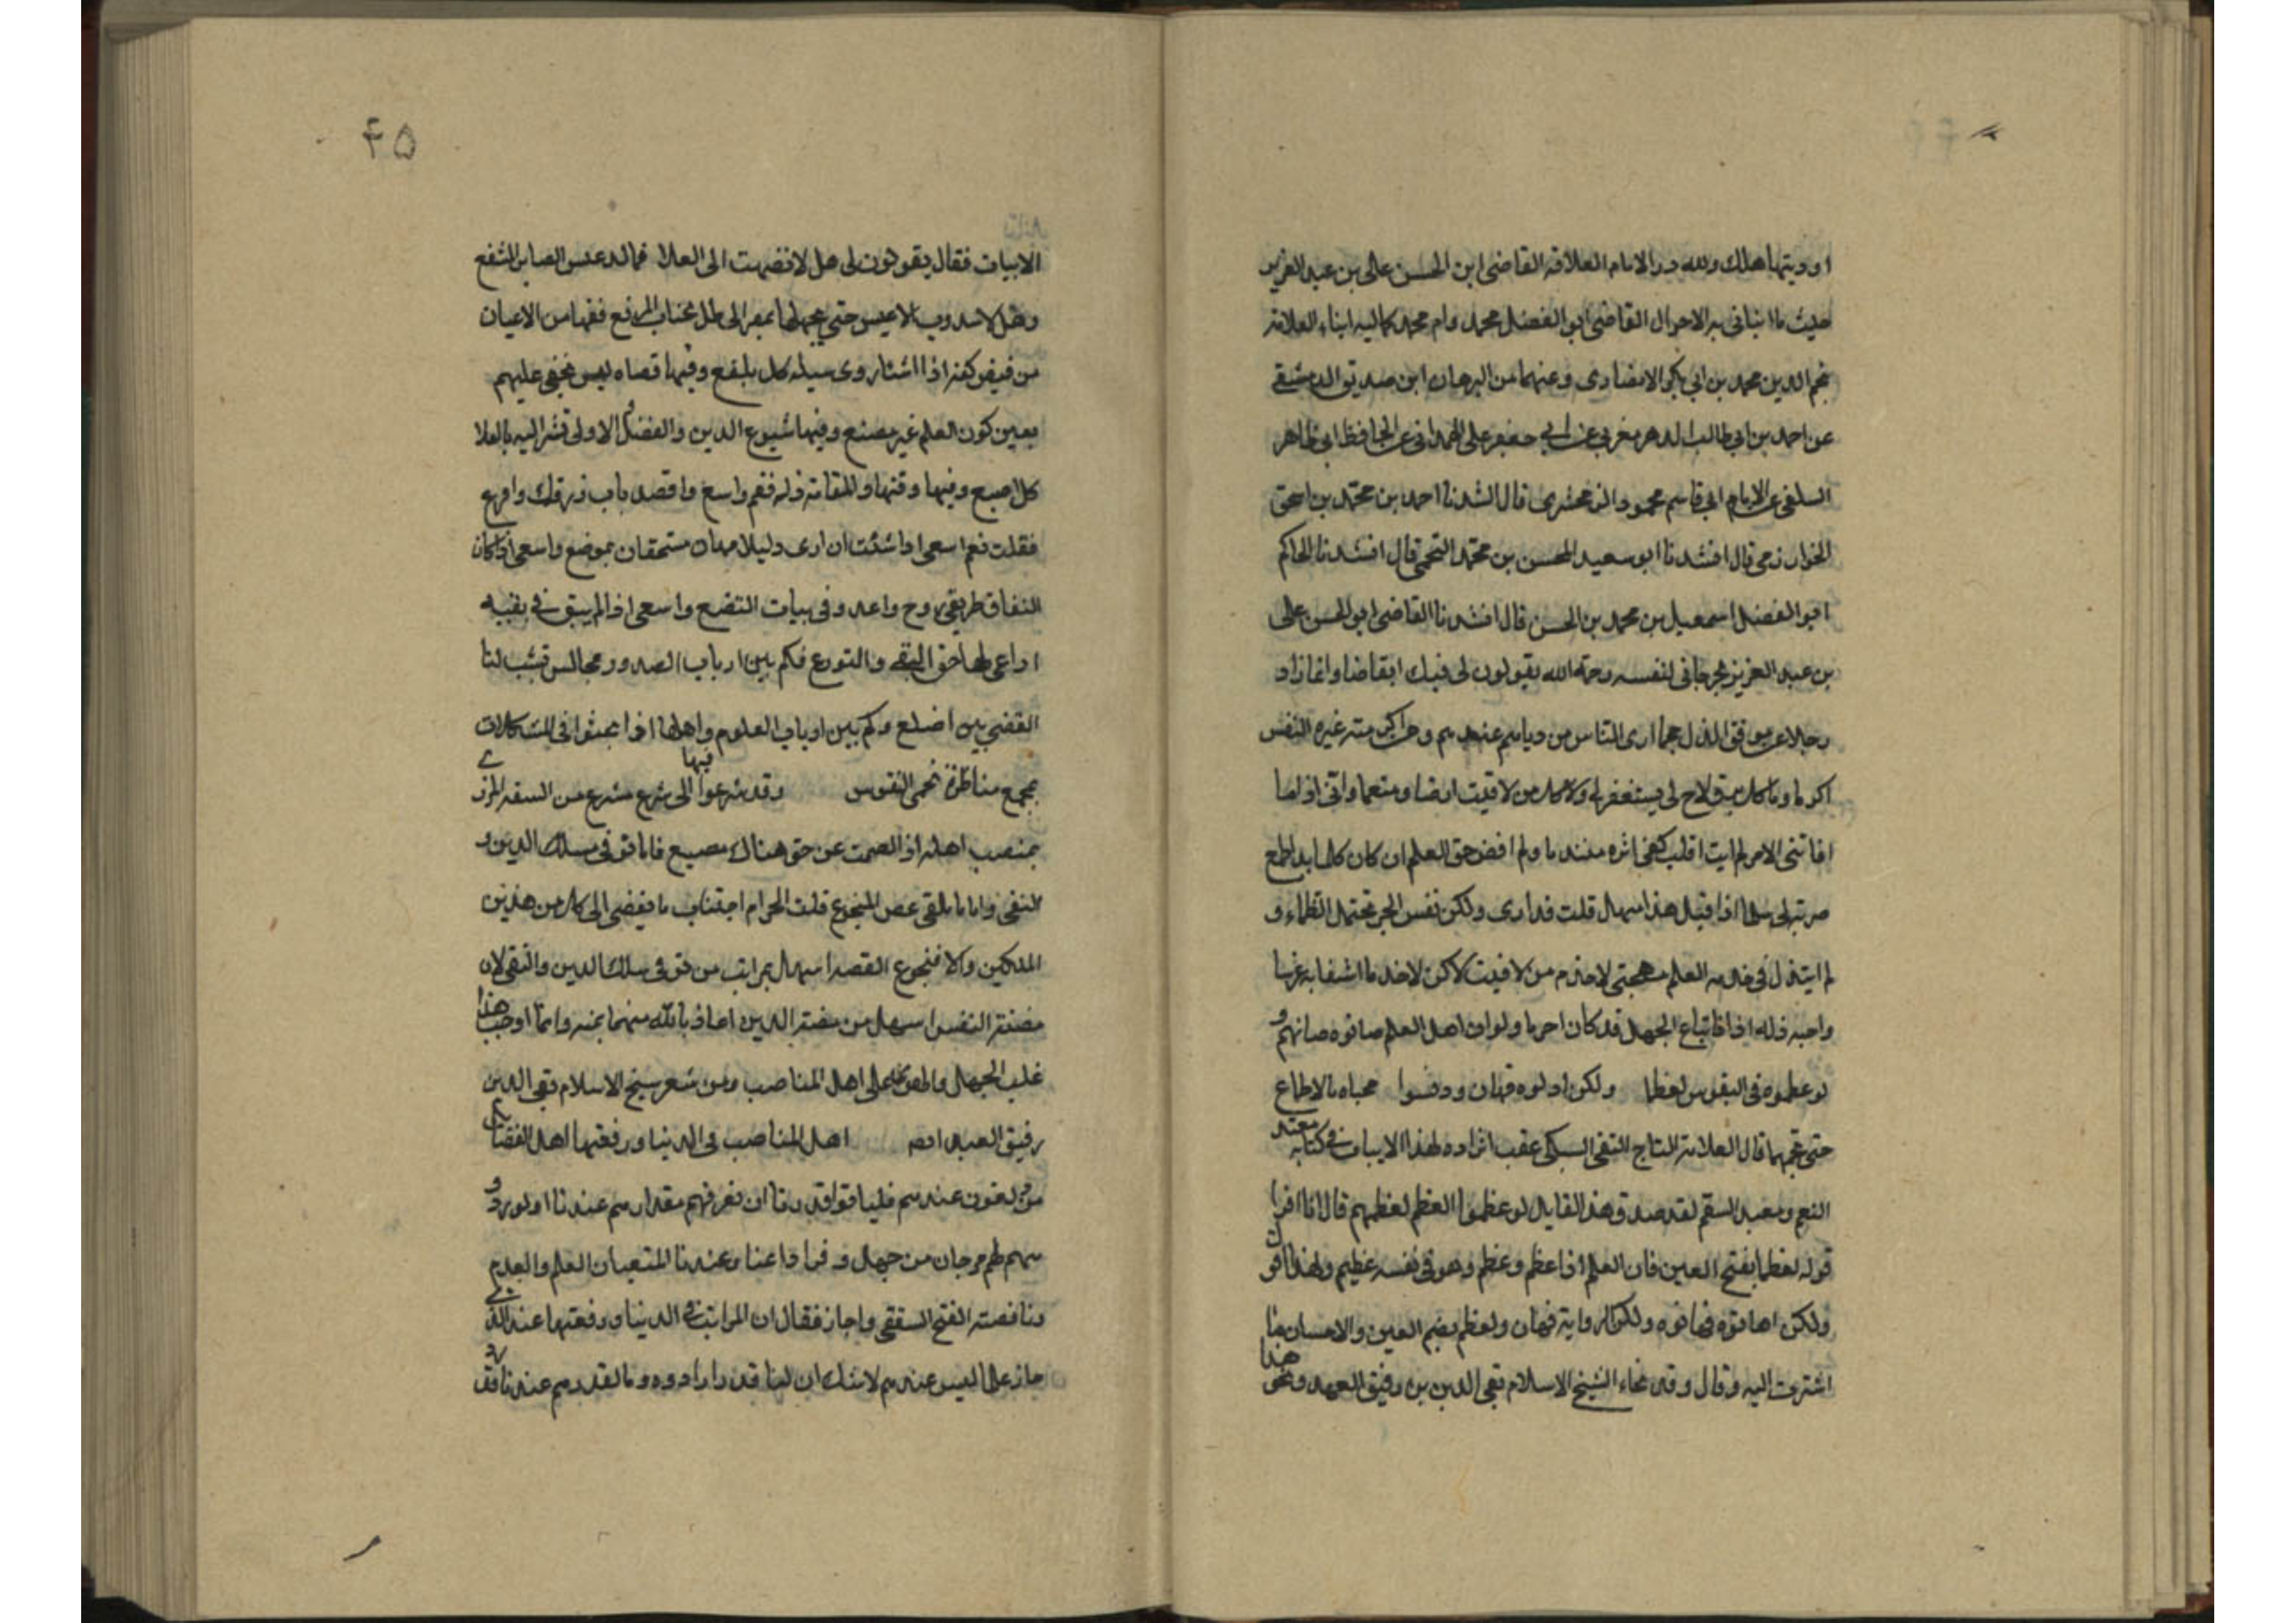 او ديتها هلك ولله در الامام العلاقه القاضى ابن الحسن على بن عبد العزيز
حيث ما انبانى به الاحوال القاضى ابو الفضل محمد وام محمد كماليه ابناء العلامة
نجم الدين محمد بن ابى بكر الانصارى وعنهما من البرهان ابن صديق الدمشقى
عن احمد بن ابى طالب الدهر مغربى عن ابى جعفر على الهمدانى عن الحافظ ابى طاهر
السلفى عن الامام ابى قاسم محمود الزمخشرى قال انشدنا احمد بن محمد بن اسحق
الخوارزمى قال انشدنا ابو سعيد المحسن بن محمد قال انشدنا الحاكم
ابو الفضل اسمعيل بن محمد بن الحسن قال انشدنا القاضى ابو الحسن على
بن عبد العزيز جرجانى لنفسه رحمة الله يقولون لى فيك انقاضا وانما زاد
رجلا عن موقف الذل جما ارى الناس من عندهم ومن غيره النفس
اكرما وما كل برق لاح لى يستغفر له ولا كل من لاقيت ارضا ومنعما وانى اذا ما
افاتنى الامر لم ابت اقلب كفى اثره متندما ولم اقض حق العلم ان كان كلما بدا طمع
صرته لى سلما اذا قيل هذا اسهال قلت قد ارى ولكن نفس الحر تحتمل الظماء و
لم ابتذل فى خدمه العلم مهجتى لاخدم من لاقيت لاكن لاخدما اشقا به غرسا
واجبه ذله اذا فاتباع الجهل قد كان احرما ولو ان اهل العلم صانوه صانهم و
لو عظموه فى النفوس لعظما ولكن اذلوه فهان ودنسوا محياه بالاطماع
حتى تجهما قال العلامة التاج التقى السبكى عقب ايراده لهذا الابيات فى كتابه معيد
النعم ومعيد السقم لقد صدق هذا القايل لو عظموا العلم لعظمهم قال انا اقرا
قوله لعظما بفتح العين فان العلم اذا عظم وعظم وهو فى نفسه عظيم ولهذا اقول
ولكن اهانوه فهانوه ولكن الرواية فهان ولعظم بضم العين والاحسان ما
اشرت اليه وقال وقد نحاء الشيخ الاسلام تقى الدين بن دقيق العيد ونحو هذا
۴۵
الابيات فقال يقولون لى هل لا نهضت الى العلا فما لد عيس الصابر المتقنع
وهل لا شددت العيس حتى بمصر الى ظل جناب المرفع ففيها من الاعيان
من فيض كفه اذا شئاء روى سيله كل بلقع وفيها قضاه ليس تخفى عليهم
بعين كون العلم غير مصنع وفيها شيوع الدين والفضل والاولى تشر اليه بالعلا
كل اصبع وفيها وفيها والمهانة ذله فقم واسع واقصد باب رزقك واقرع
فقلت نعم اسعى اذا شئت ان ارى ذليلا مهان مستحقان بموضع واسعى اذا كان
النفاق طريقى اروح واغد وفى بيات التصنع واسعى اذا لم يبق فى بقيه
اراعى بها حق التقى والتورع فكم بين ارباب الصدور مجالس تشب لنا
القضى بين اضلع وكم بين ارباب العلوم واهلها اذا بحثوا فى المشكلات
بمجمع مناظرة تحمى النفوس وقد شرعوا فيها الى شرع مشرع من السفه المزرى
بمنصب اهله اذ الصمت عن حق هناك مضيع فاما توقى مسلك الدين و
التقى واما تلقى غص المتجرع قلت الحرام اجتناب ما يفضى الى كل من هذين
المسلكين والا فتجرع الغصه اسهل بمراتب من توقى سلك الدين والتقى لان
مضرة النفس اسهل من مضرة الدين اعاذ بالله منهما بمنه وانما اوجب هذا
غلب الجهل والهوى على اهل المناصب ومن شعر شيخ الاسلام تقى الدين
رفيق العيد اهل المناصب فى الدنيا ورفعتها اهل الفضايل
مرذلون عندهم فليتنا لو قدرنا ان نعرفهم مقدارهم عندنا او لو دروه و
لهم مريحان من جهل وفرط غنا وعندنا المتعبان العلم والعدم
وناقضه الفتح الثقفى واجاز فقال ان المراتب فى الدنيا ورفعتها عند الذى
حاز علما ليس عندهم لا شك ان لنا قدرا راوه وما لقدرهم عندنا قدر